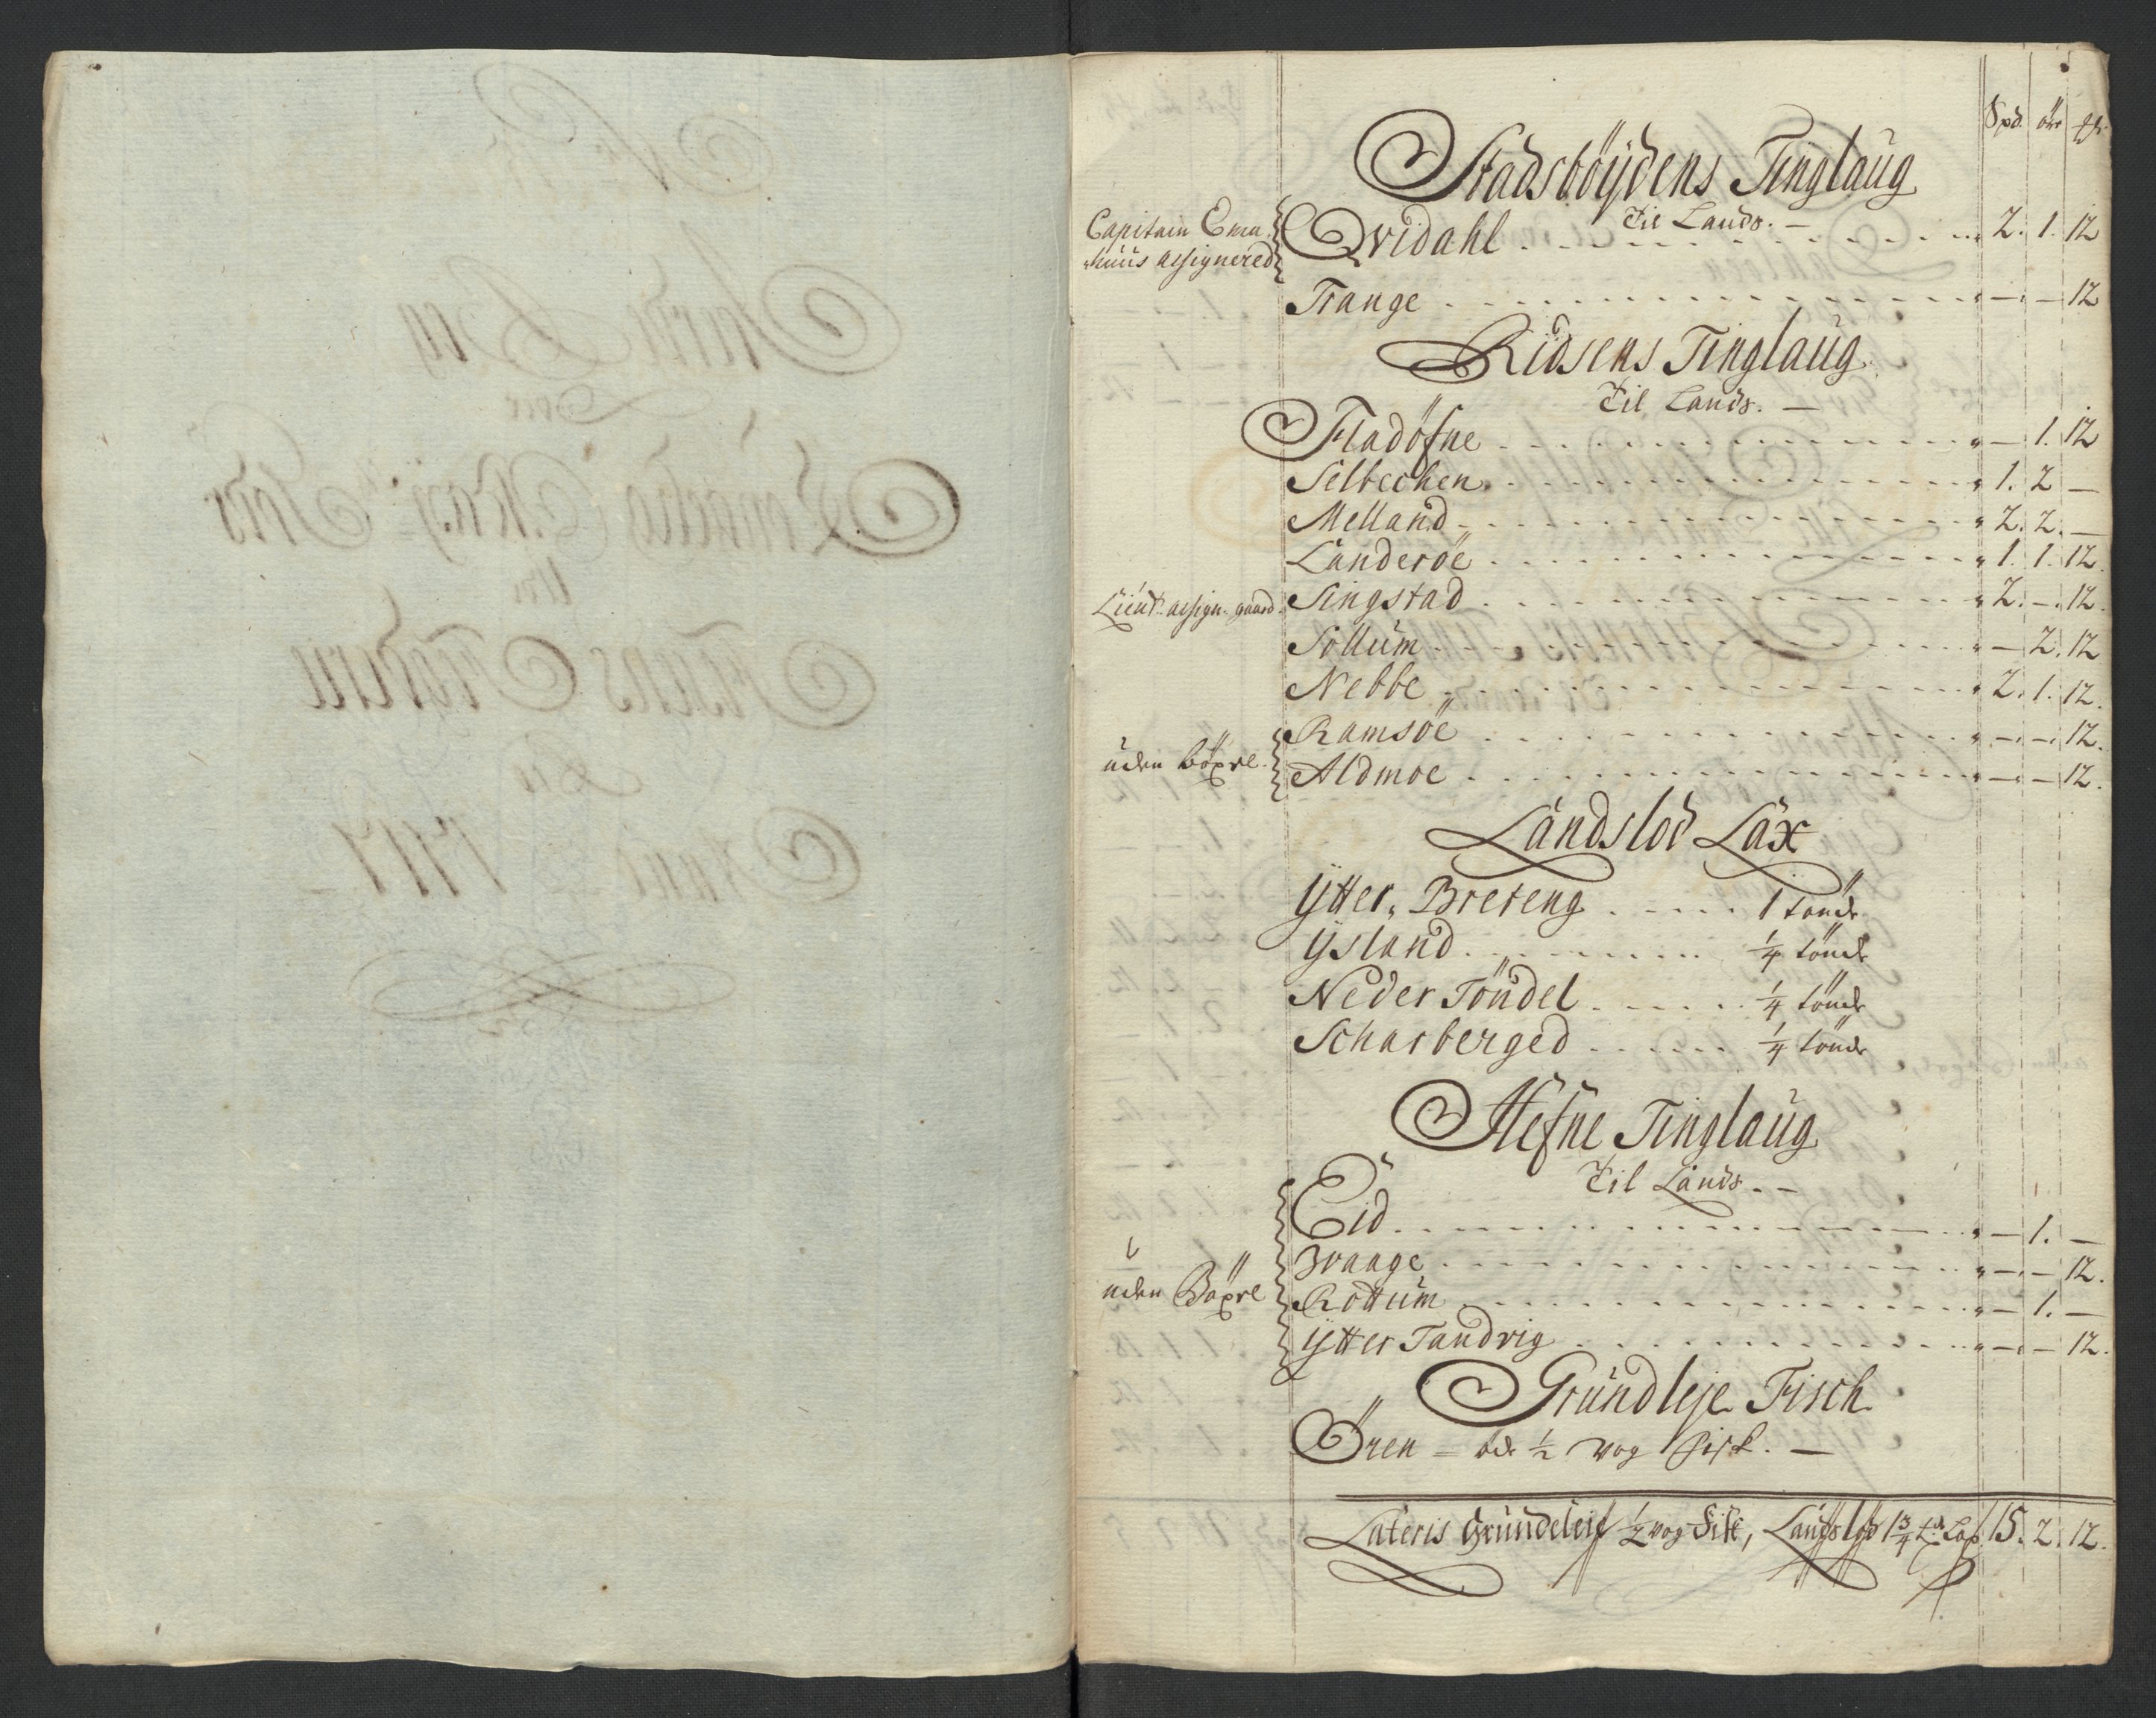 Spd. öre
Stadsböÿdens Tinglaug
Til Lands. —
Capitain Emahuus assignered
Qvidahl . . . 2. 1. 12
Trange . . . — — 12
Ridsens Tinglaug
Til Lands. —
Fladöfne . . . — 1. 12
Selbechen . . . 1. 2 —
Melland . . . 2. 2. —
Landeröe . . . 1. 1. 12.
Lieut. assign. gaard. Singstad . . . 2. — . 12.
Sollum . . . — 2. 12
Nebbe . . . 2. 1. 12.
Ramsöe . . . — — 12.
uden böxel.
Aldmoe . . . — — 12.
Landslod Lax
Ÿtter Brereng . . . 1 tönde
Ÿsland . . . ¼ tönde
Neder Töndel . . . ¼ tönde
Scharberged . . . ¼ tönde
Hefne Tinglaug
Til Lands. —
Eid . . . — 1. —
Vraage . . . — — 12.
uden Böxel Rottum . . . — 1. —
Ÿtter Tandvig . . . — — 12.
Grundleje Fisch
Ören — ½ vog fisk. —
Lateris Grundeleje ½ vog Fisk, Landslod 1¾ td. Lax 15. 2. 12.